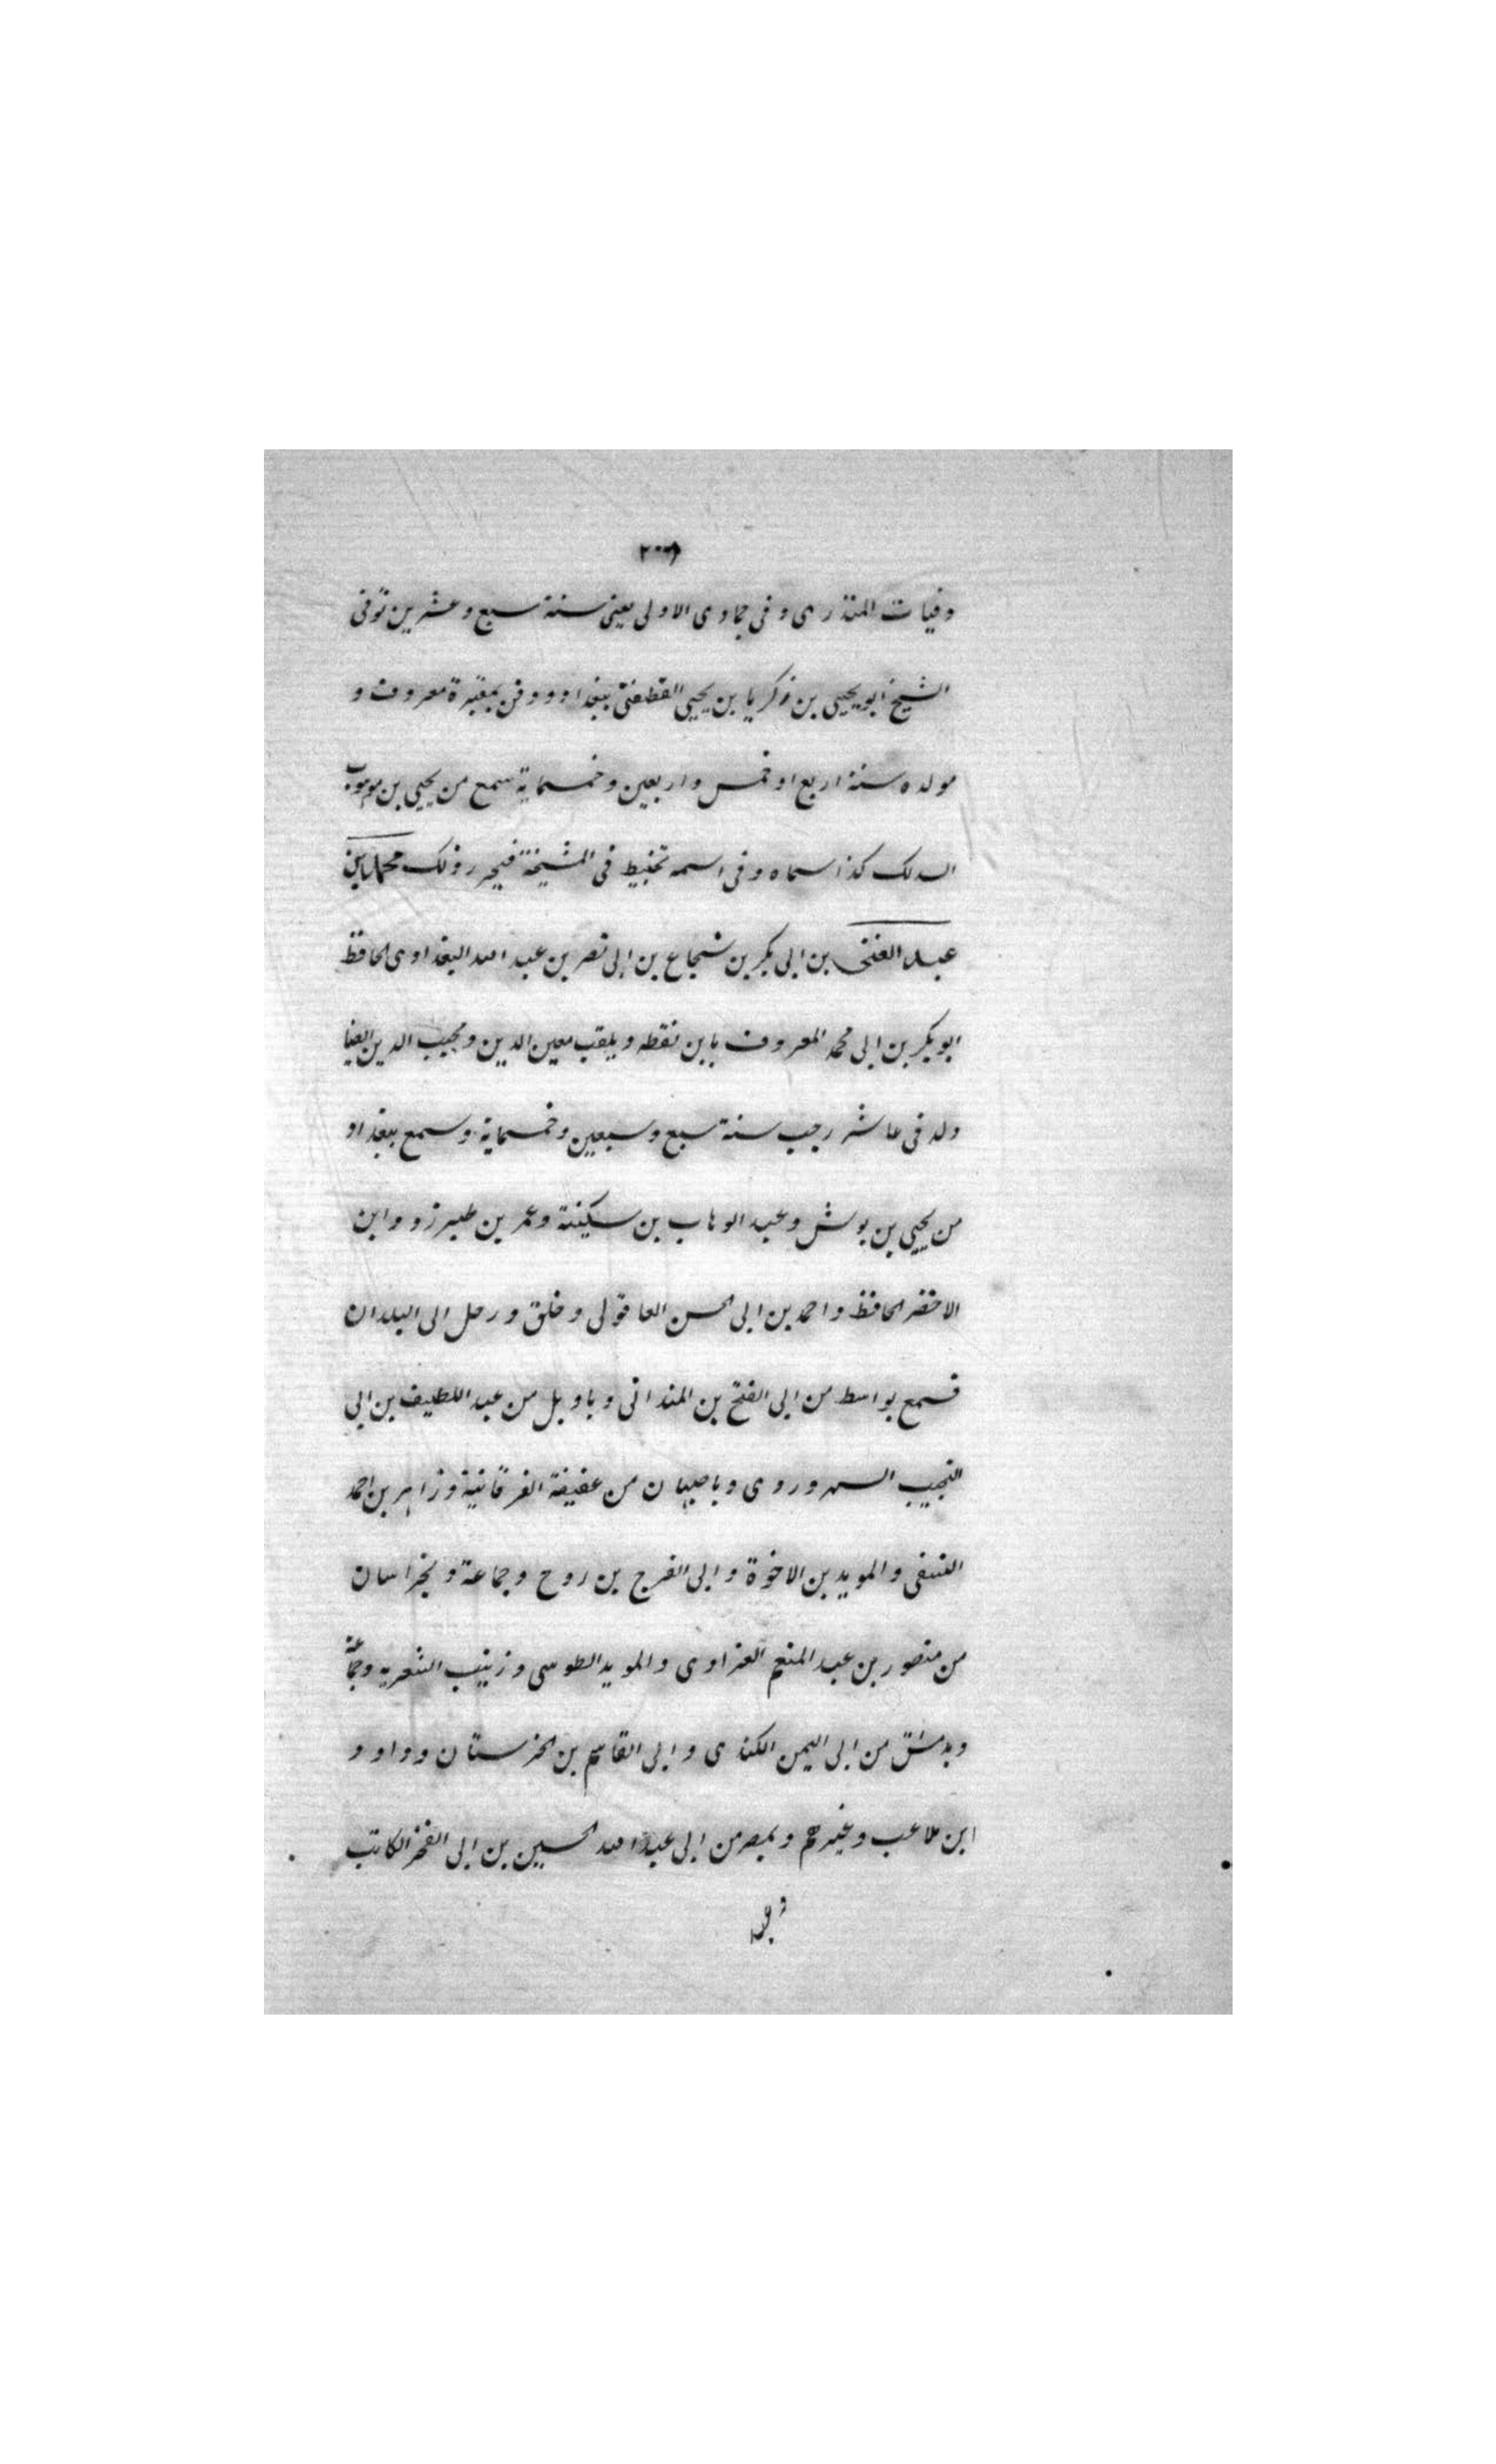 وفيات المنذرى وفى جمادى الاولى يعنى سنة سبع وعشرين توفى
الشيخ ابو يحيى بن زكريا بن يحيى القطفتى ببغداد ودفن بمقبرة معروف و
مولده سنة اربع او خمس واربعين وخمسماية سمع من يحيى بن موهوب
السدلك كذا سماه وفى اسمه تخبيط فى المشيخة فيحرر ذلك محمد بن
عبد الغنى بن ابى بكر بن شجاع بن ابى نصر بن عبد الله البغدادى الحافظ
ابو بكر بن ابى محمد المعروف بابن نقطه ويلقب معين الدين ومحب الدين ايضا
ولد فى عاشر رجب سنة سبع وسبعين وخمسماية وسمع ببغداد
من يحيى بن بوش وعبد الوهاب بن سكينة وعمر بن طبرزد وابن
الاخضر الحافظ واحمد بن ابى الحسن العاقولى وخلق ورحل الى البلدان
فسمع بواسط من ابى الفتح بن المندانى وباربل من عبد اللطيف بن ابى
النجيب السهروردى وباصبهان من عفيفة الفرقانية وزاهر بن احمد
الثقفى والمويد بن الاخوة وابى الفرج بن روح وجماعة وبخراسان
من منصور بن عبد المنعم الفراوى والمويد الطوسى وزينب الشعرية وجماعة
وبدمشق من ابى اليمن الكندى وابى القاسم بن الحرستان وداود
ابن ملاعب وغيرهم وبمصر من ابى عبد الله الحسين بن ابى الفخر الكاتب